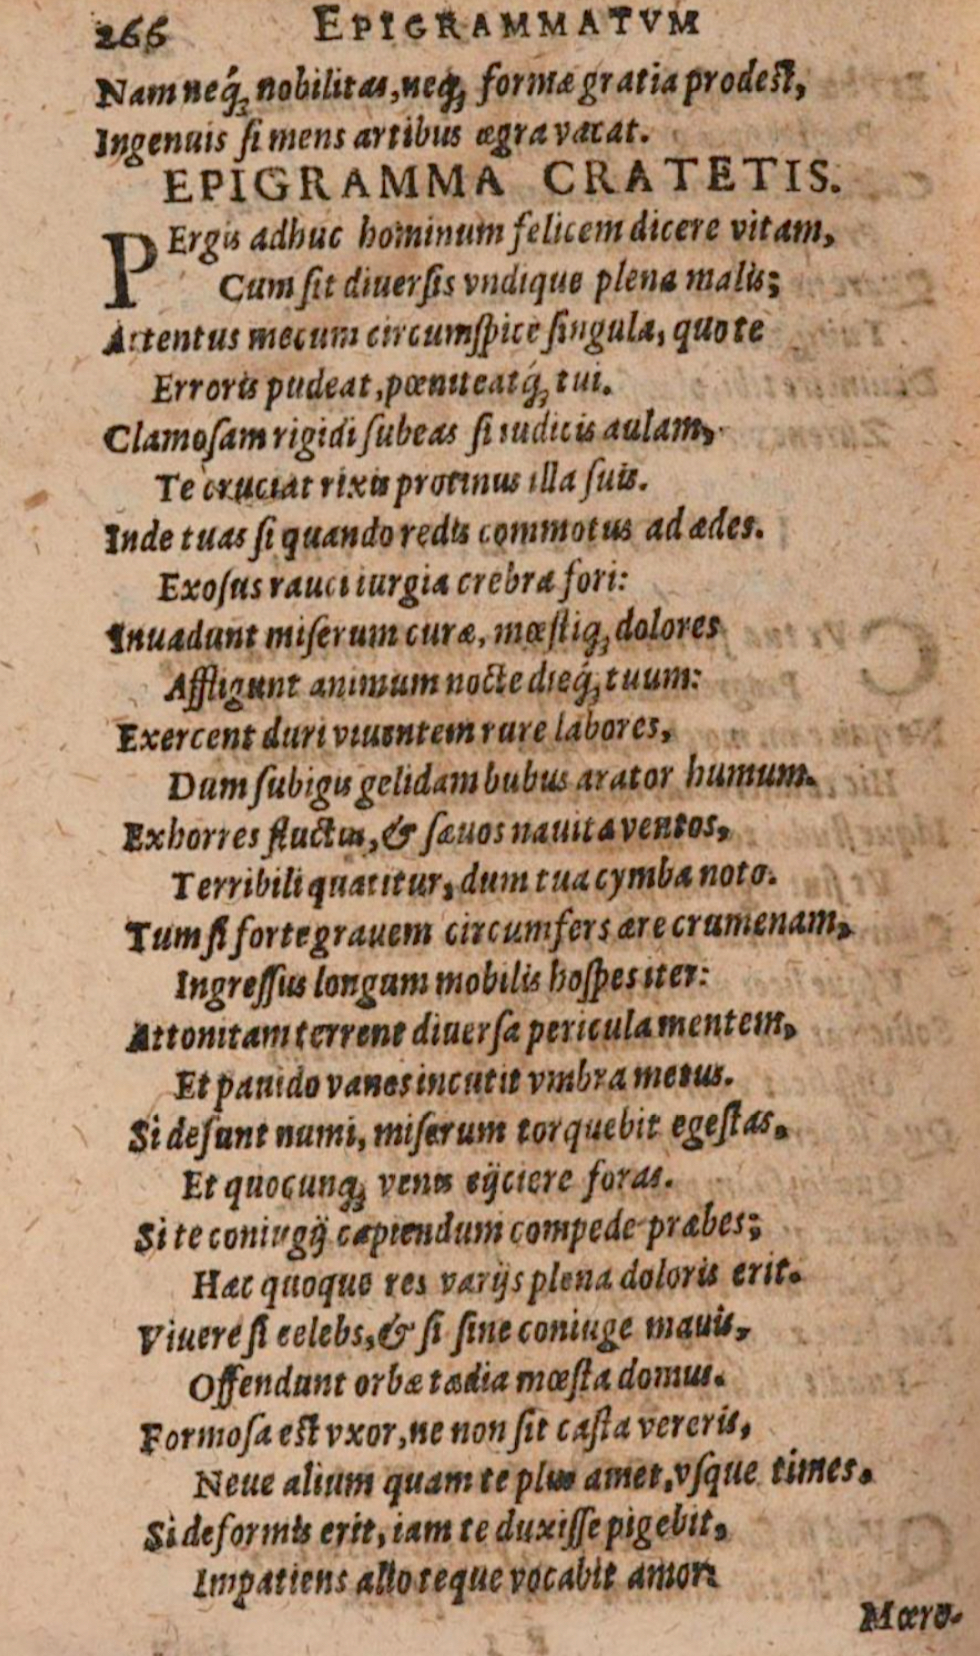 266 EPIGRAMMATVM
Nam neq́ꝫ nobilitas, neqꝫ formæ gratia prodest,
Ingenuis ſi mens artibus ægra vacat.
EPIGRAMMA CRATETIS.
PErgis adhuc hominum felicem dicere vitam,
Cum ſit diuerſis vndique plena malis;
Attentus mecum circumſpice ſingula, quo te
Erroris pudeat, pœniteatq́ꝫ tui.
Clamoſam rigidi ſubeas ſi iudicis aulam,
Te cruciat rixis protinus illa ſuis.
Inde tuas ſi quando redis commotus ad ædes.
Exoſus rauci iurgia crebra fori:
Inuadunt miſerum curæ, mœſtiqꝫ dolores
Affligunt animum nocte dieq́ꝫ tuum:
Exercent duri viuentem rure labores,
Dum ſubigis gelidam bubus arator humum.
Exhorres fluctus, & ſæuos nauita ventos,
Terribili quatitur, dum tua cymba noto.
Tum ſi forte grauem circumfers ære crumenam,
Ingreſſus longum mobilis hoſpes iter:
Attonitam terrent diuerſa pericula mentem,
Et pauido vanes incutit vmbra metus.
Si deſunt numi, miſerum torquebit egeſtas.
Et quocunqꝫ venis eijciere foras.
Si te coniugij capiendum compede præbes;
Hæc quoque res varijs plena doloris erit.
Viuere ſi celebs, & ſi ſine coniuge mauis,
Offendunt orbæ tædia mœſta domus.
Formoſa est vxor, ne non ſit caſta vereris,
Neue alium quam te plus amet, vſque times.
Si deformis erit, iam te duxiſſe pigebit,
Impatiens alio teque vocabit amor.
Mœro-